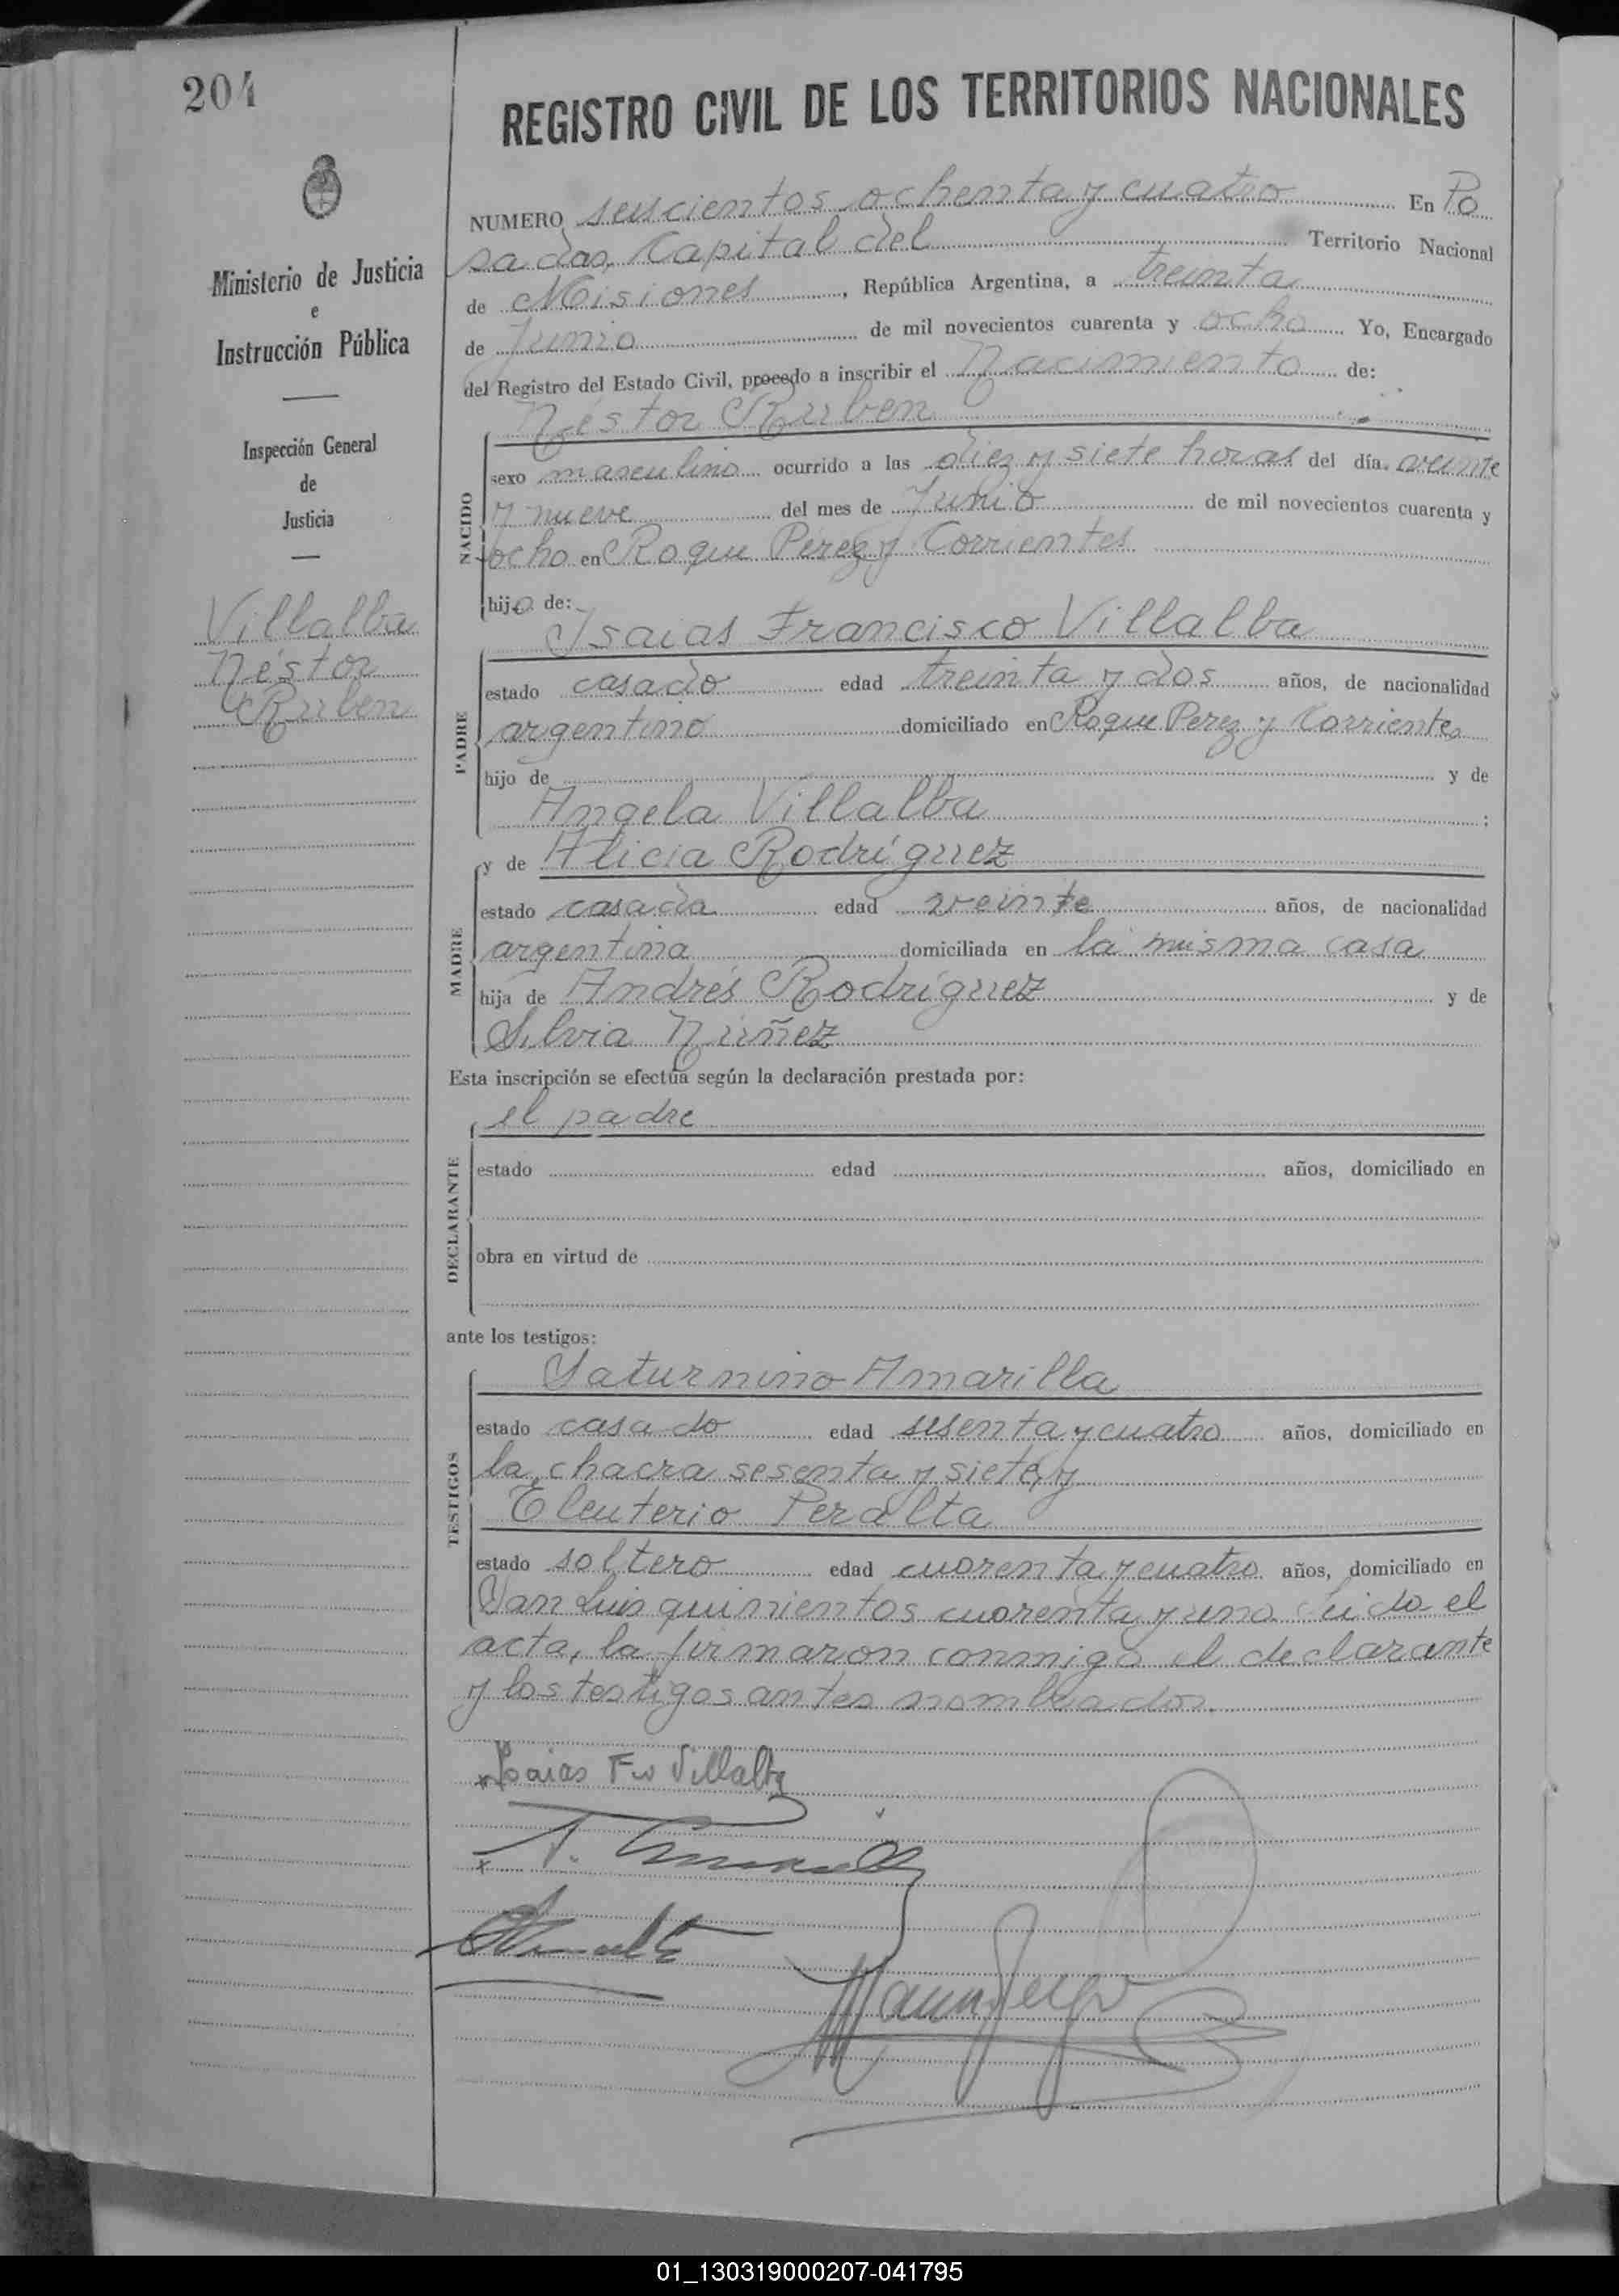 204
REGISTRO CIVIL DE LOS TERRITORIOS NACIONALES
Ministerio de Justicia
e
Instrucción Pública
Inspección General
de
Justicia
Villalba
Néstor
Ruben
NUMERO seiscientos ochenta y cuatro En Po
sadas, Capital del Territorio Nacional
de Misiones, República Argentina, a treinta
de Junio de mil novecientos cuarenta y ocho Yo, Encargado
del Registro del Estado Civil, procedo a inscribir el Nacimiento de:
Néstor Ruben
NACIDO
sexo masculino ocurrido a las diez y siete horas del día veinte
y nueve del mes de Junio de mil novecientos cuarenta y
ocho en Roque Pérez y Corrientes
hijo de:
Isaias Francisco Villalba
PADRE
estado casado edad treinta y dos años, de nacionalidad
argentino domiciliado en Roque Perez y Corrientes
hijo de y de
Angela Villalba ;
MADRE
y de Alicia Rodríguez
estado casada edad veinte años, de nacionalidad
argentina domiciliada en la misma casa
hija de Andrés Rodríguez y de
Silvia Núñez
Esta inscripción se efectúa según la declaración prestada por:
el padre
DECLARANTE
estado edad años, domiciliado en
obra en virtud de
ante los testigos:
TESTIGOS
Saturnino Amarilla
estado casado edad sesenta y cuatro años, domiciliado en
la chacra sesenta y siete, y
Eleuterio Peralta
estado soltero edad cuarenta y cuatro años, domiciliado en
San Luis quinientos cuarenta y uno. Leído el
acta, la firmaron conmigo el declarante
y los testigos antes nombrados.
Isaias Fco Villalba
01_130319000207-041795